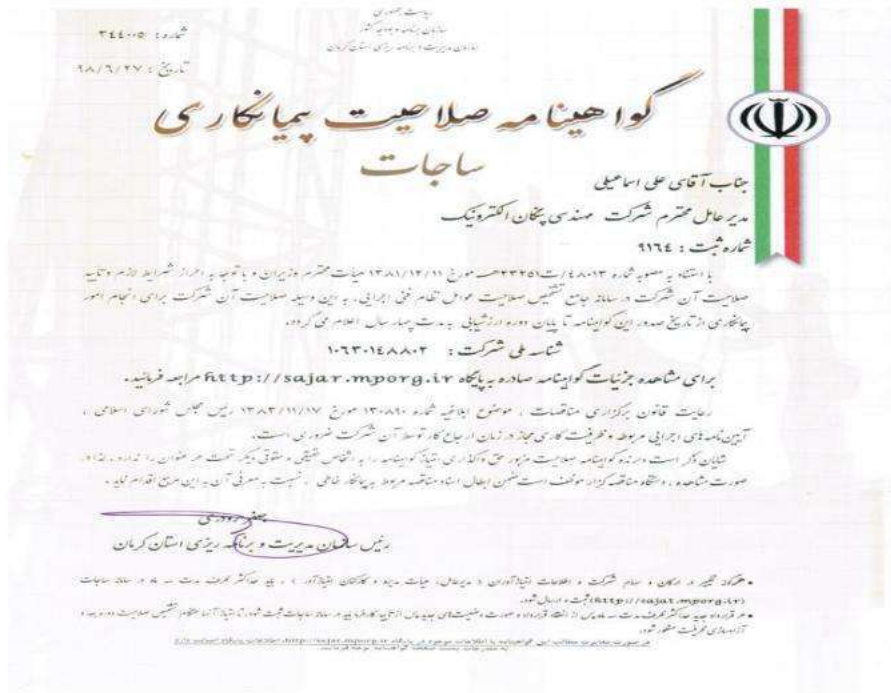 ریاست جمهوری
سازمان برنامه و بودجه کشور
سازمان مدیریت و برنامه ریزی استان کرمان
شماره : ۳٤٤۰۰۵
تاریخ : ۹۸/٦/۲۷
گواهینامه صلاحیت پیمانکاری
ساجات
جناب آقای علی اسماعیلی
مدیر عامل محترم شرکت مهندسی پنگان الکترونیک
شماره ثبت : ۹۱٦٤
با استناد به مصوبه شماره ٤۸۰۱۳/ت۲۳۲۵۱هـ مورخ ۱۳۸۱/۱۲/۱۱ هیات محترم وزیران و با توجه به احراز شرایط لازم و تایید
صلاحیت آن شرکت در سامانه جامع تشخیص صلاحیت عوامل نظام فنی اجرایی، به این وسیله صلاحیت آن شرکت برای انجام امور
پیمانکاری از تاریخ صدور این گواهینامه تا پایان دوره ارزشیابی به مدت چهار سال اعلام می گردد.
شناسه ملی شرکت : ۱۰٦۳۰۱٤۸۸۰۲
برای مشاهده جزئیات گواهینامه صادره به پایگاه http://sajar.mporg.ir مراجعه فرمائید.
رعایت قانون برگزاری مناقصات ، موضوع ابلاغیه شماره ۱۳۰۸۹۰ مورخ ۱۳۸۳/۱۱/۱۷ رئیس مجلس شورای اسلامی ،
آیین نامه های اجرایی مربوطه و ظرفیت کاری مجاز در زمان ارجاع کار توسط آن شرکت ضروری است.
شایان ذکر است دارنده گواهینامه صلاحیت مزبور حق واگذاری امتیاز گواهینامه را به اشخاص حقیقی و حقوقی دیگر تحت هر عنوان را ندارد ، لذا در
صورت مشاهده ، دستگاه مناقصه گزار موظف است ضمن ابطال اسناد مناقصه مربوط به پیمانکار خاطی ، نسبت به معرفی آن به این مرجع اقدام نماید .
جعفر رودری
رئیس سازمان مدیریت و برنامه ریزی استان کرمان
• هرگونه تغییر در ارکان و سهام شرکت و اطلاعات امتیازآوران ( مدیرعامل، هیات مدیره و کارکنان امتیازآور ) ، باید حداکثر ظرف مدت سه ماه در سامانه ساجات
(http://sajat.mporg.ir) ثبت و ارسال شود.
• هر قرارداد جدید حداکثر ظرف مدت سه ماه پس از انعقاد قرارداد و صورت وضعیت های جدید پس از تایید کارفرما باید در سامانه ساجات ثبت شود، تا امتیاز آنها هنگام تشخیص صلاحیت دوره بعد و
آزادسازی ظرفیت منظور شود.
در صورت مغایرت مطالب این گواهینامه با اطلاعات موجود در پایگاه http://sajar.mporg.ir، اطلاعات پایگاه
به مندرجات پشت صفحه گواهینامه توجه فرمایید.